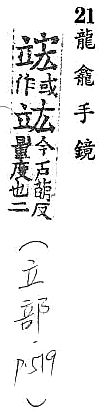 21 龍龕手鏡
竤或作竑今戶萌反量度也二
(立部 p.519)